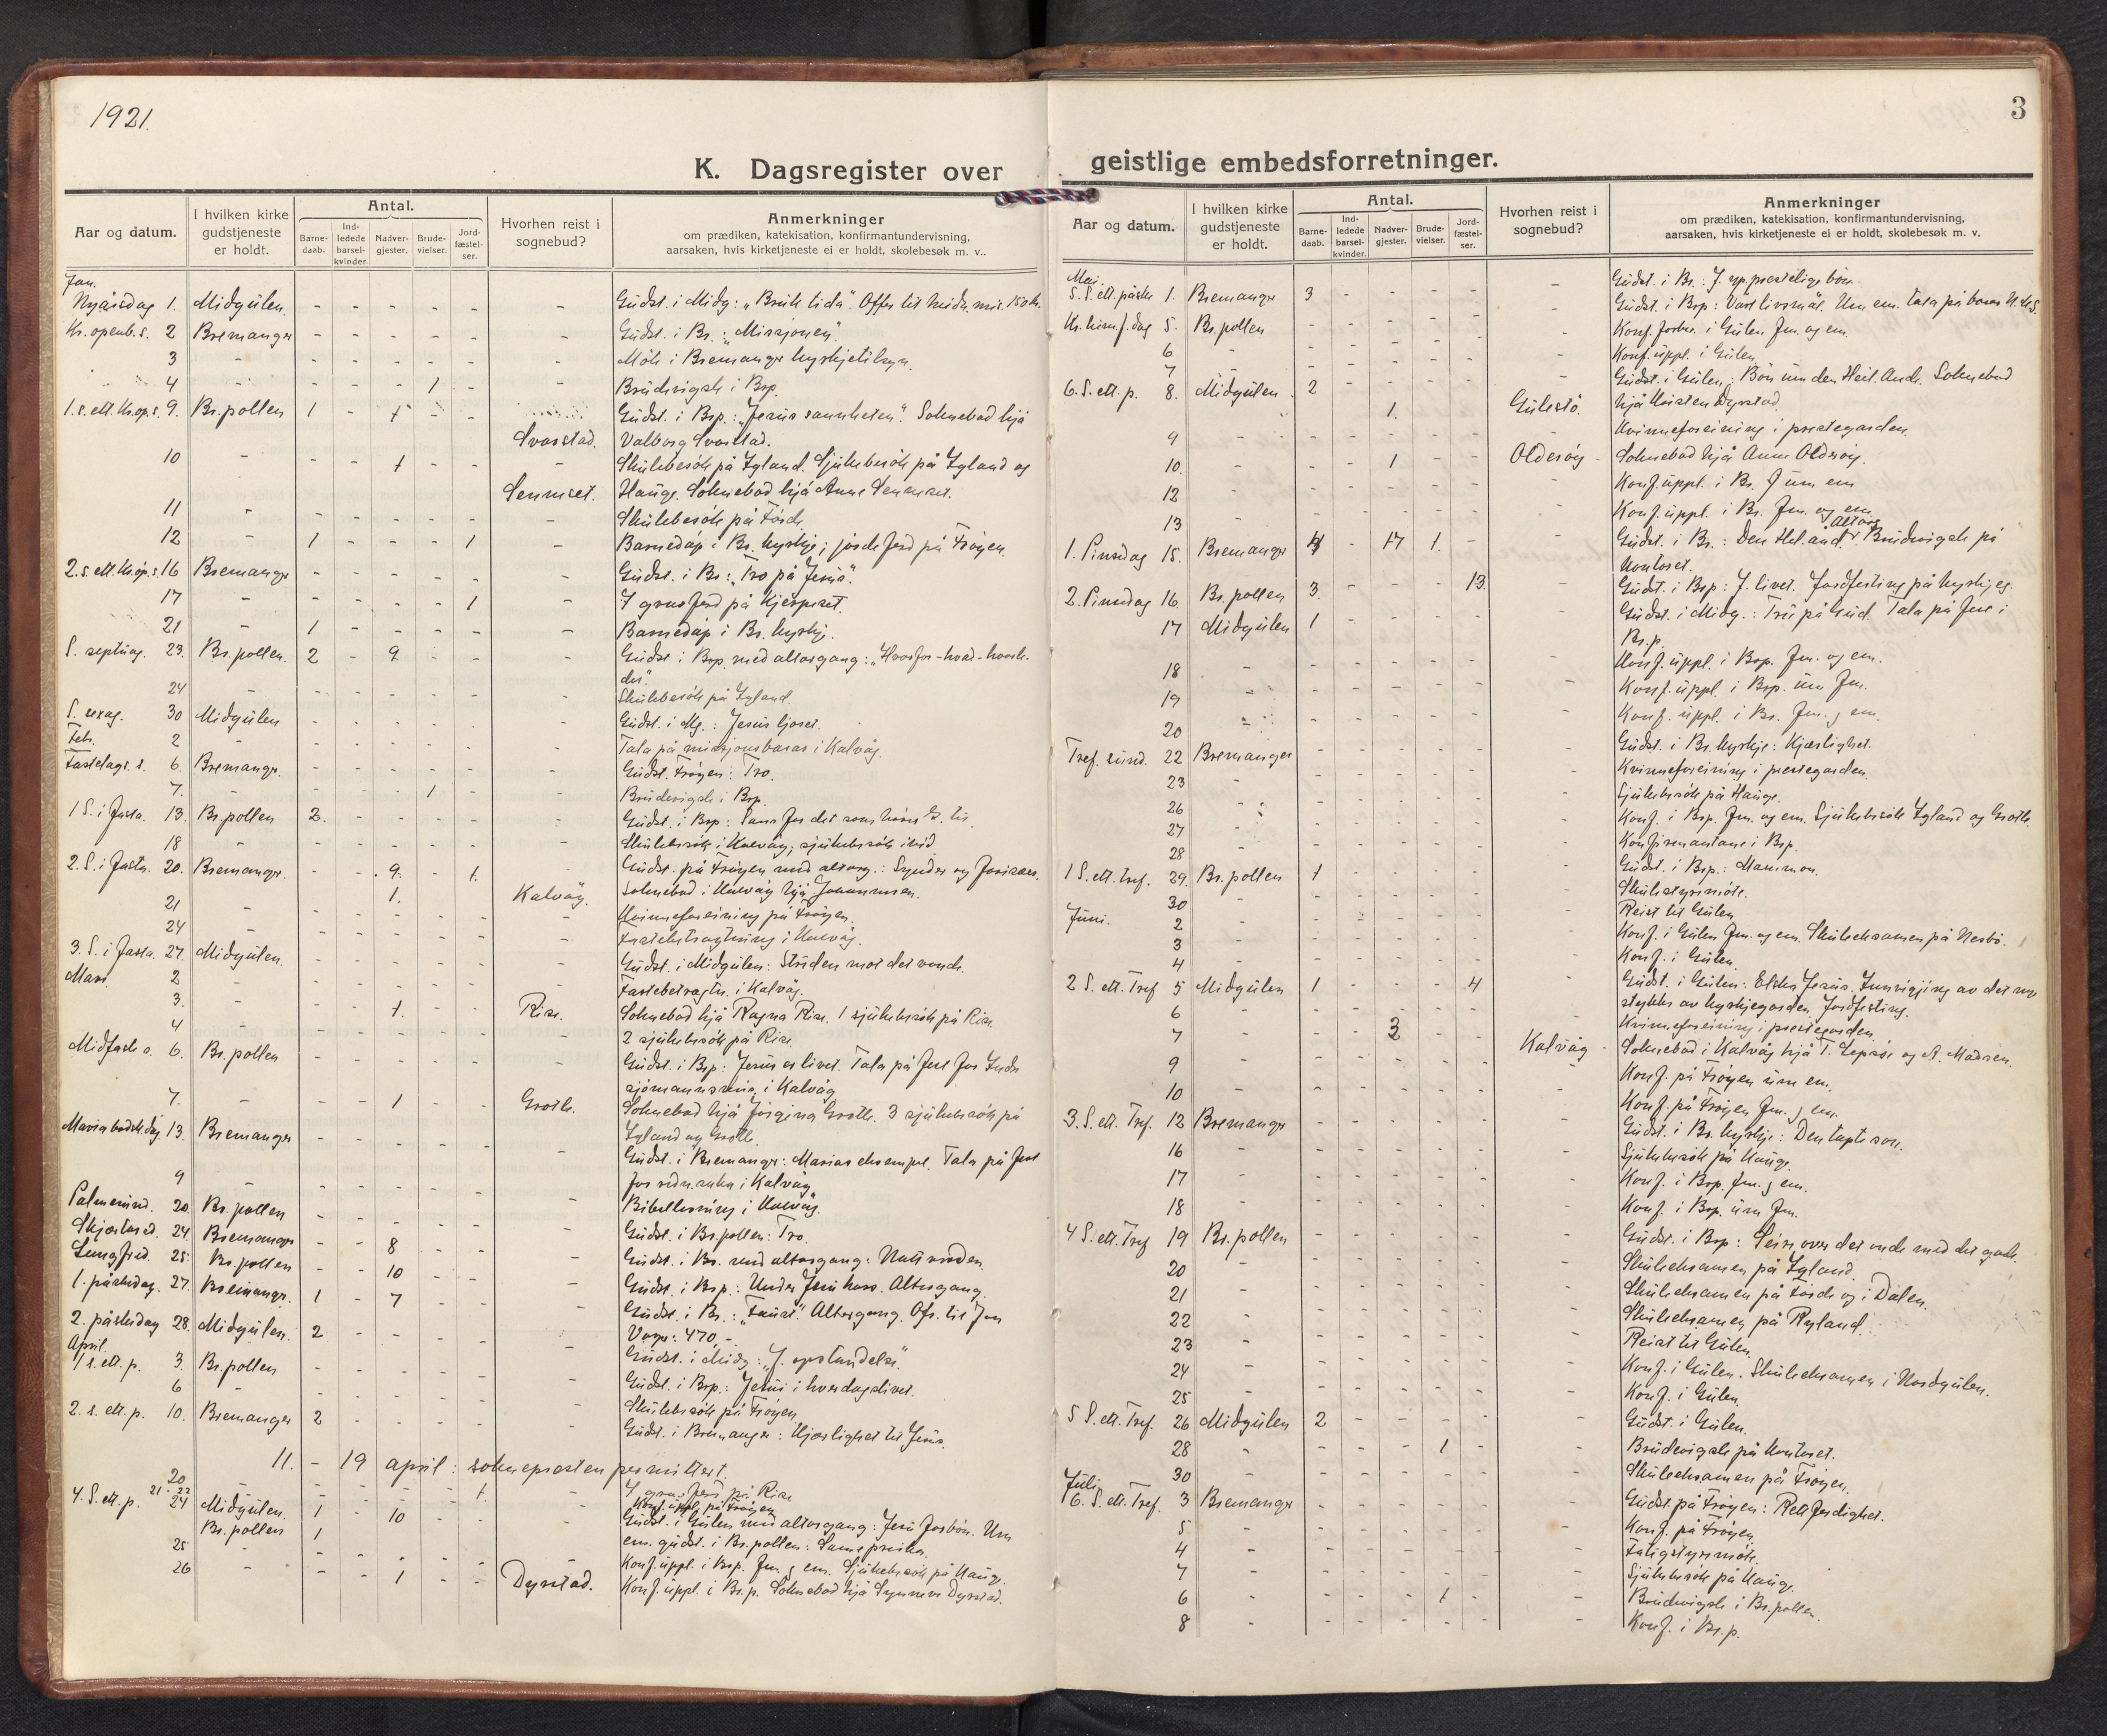 1921.
3
K. Dagsregister over geistlige embedsforretninger.
Aar og datum.
I hvilken kirke gudstjeneste er holdt.
Antal.
Barne-daab.
Ind-ledede barsel-kvinder.
Nadver-gjester.
Brude-vielser.
Jord-fæstel-ser.
Hvorhen reist i sognebud?
Anmerkninger
om prædiken, katekisation, konfirmantundervisning,
aarsaken, hvis kirketjeneste ei er holdt, skolebesøk m. v..
Jan.
Nyårsdag 1. Midgulen - - - - - - Gudst. i Midg: „ tida". Offer til 150 kr.
Kr. openb. s. 2 Bremanger - - - - - - Gudst. i Br.: „Missjonen".
3 - Møte i Bremanger kyrkjetilsyn.
4 - - - - 1 - - Brudvigsle i Brp.
1. s. ett. Kr. op. s. 9. Br. pollen 1 - 1 - - Gudst. i Brp.: „Jesus sannheten". Soknebod hjå
Svarstad. Valborg Svarstad.
10 - - - 1 - - - Skulebesøk på Igland. Sjukebesøk på Igland og
Senneset. Hauge. Soknebod hjå Anne Senneset.
11 - - - - - - - Skulebesøk på Førde.
12 - 1 - - - 1 - Barnedåp i Br. kyrkje; jordeferd på Frøyen.
2. s. ett. Kr. op. s. 16 Bremanger - - - - - - Gudst. i Br: „Tro på Jesus".
17 - - - - - 1 - 1 gravferd på Kjerpeset.
21 - 1 - - - - - Barnedåp i Br. kyrkj.
S. septuag. 23. Br. pollen. 2 - 9 - - - Gudst i Brp. med altargang: „Hvorfor-hvad-hvorle-
des".
24 - Skulebesøk på Igland.
S. sexag. 30 Midgulen - - - - - - Gudst. i Mg.: Jesus ljoset.
Feb. 2 - Tala på misjonsbasar i Kalvåg.
Fastelags. s. 6. Bremanger. - - - - - - Gudst. Frøyen: Tro.
7. - - - - 1 - - Brudevigsle i Brp.
1 S. i fasta. 13. Br. pollen 2. - - - - - Gudst. i Brp: Sans for det som hører G. til.
18 - Skulebesøk i Kalvåg; sjukebesøk ibid.
2. S. i fasta. 20. Bremanger. - - 9. - 1. Gudst. på Frøyen med altarg.: Synder og fariseer.
1. Kalvåg. Soknebod i Kalvåg hjå Johannessen.
21 - Kvinneforeining på Frøyen.
24 - Fastebetragtning i Kalvåg.
3. S. i fasta. 27. Midgulen. - - - - - - Gudst. i Midgulen: Striden mot det vonde.
Mars 2 - Fastebetragtn. i Kalvåg.
3. - - - 1. - - Rise. Soknebod hjå Ragna Rise. 1 sjukebesøk på Rise.
4 - 2 sjukebesøk på Rise.
Midfaste s. 6. Br. pollen - - - - - - Gudst. i Brp: Jesus er livet. Tala på fest for Indre
sjømannsmisj. i Kalvåg
7. - - - 1 - - Grotle. Soknebod hjå Jørgina Grotle. 3 sjukebesøk på
Igland og Grotle.
Maria bodsk. dag. 13. Bremanger - - - - - - Gudst. i Bremanger: Marias eksempel. Tala på fest
i Kalvåg
9 - Bibellesning i Kalvåg.
Palmesund. 20. Br. pollen - - - - - - Gudst. i Br. pollen: Tro.
Skjærtorsd. 24. Bremanger - - 8 - - - Gudst. i Br. med altargang: Nattverden.
Langfred. 25. Br. pollen - - 10 - - - Gudst. i Brp.: Under Jesu kors. Altergang.
1. påskedag. 27. Bremanger. 1 - 7 - - - Gudst. i Br.: Altergang. Ofr. til
: 470,-
2. påskedag 28. Midgulen. 2 - - - - - Gudst. i Midg: „J. opstandelse".
April.
1 s. ett. p. 3. Br. pollen - - - - - - Gudst. i Brp.: Jesus i hverdagslivet.
6 - Skulebesøk på Frøyen.
2. s. ett. p. 10. Bremanger 2 - - - - - Gudst. i Bremanger: Kjærlighet til Jesus.
11. - 19 april: soknepresten permittert.
20 - 1. 1 gravferd på Rise
21-22 Konf. uppl. på Frøyen
4. S. ett. p. 24 Midgulen. 1 - 10 - - - Gudst. i Gulen med altargang: Jesu forbøn. Um
Br. pollen 1 em. gudst. i Br. pollen: Same preika.
25 - Konf. uppl. i Brp. fm. og em. Sjukebesøk på Haug.
26 - - - 1 - - Dyrstad. Konf. uppl. i Br. p. Soknebod hjå Dyrstad.
Aar og datum.
I hvilken kirke gudstjeneste er holdt.
Antal.
Barne-daab.
Ind-ledede barsel-kvinder.
Nadver-gjester.
Brude-vielser.
Jord-fæstel-ser.
Hvorhen reist i sognebud?
Anmerkninger
om prædiken, katekisation, konfirmantundervisning,
aarsaken, hvis kirketjeneste ei er holdt, skolebesøk m. v.
Mai.
5. S. ett. påske 1. Bremanger 3 - - - - - Gudst. i Br.: J. yppersteprestelige bøn.
Kr. himf. dag 5. Br. pollen - - - - - - Gudst. i Brp: Vårt livsmål. Um em. tala på
6 - Konf. forbr. i Gulen fm. og em.
7 - Konf. uppl. i Gulen
6. S. ett. p. 8. Midgulen 2 - - - - Gudst. i Gulen: Bøn um den Heil. And. Soknebod
1. Gulestø. hjå Dyrstad.
9 - Kvinneforeining i prestegarden.
10. - - - 1 - - Oldersøy - Soknebod hjå Anne Oldersøy.
12 - Konf. uppl. i Br. fm em
13 - Konf. uppl. i Br. fm. og em.
1. Pinsedag 15. Bremanger 4 - 17 1. - - Gudst. i Br.: Den Heil. and. Altarg. Brudvigsle på
kontoret.
2. Pinsedag 16. Br. pollen 3. - - - 13. - Gudst. i Brp: J. livet. Jordfesting på kyrkjeg.
17 Midgulen 1 - - - - - Gudst. i Midg.: Tru på Gud. Tala på fest i
Br. p.
18 - Konf. uppl. i Brp. fm. og em.
19 - Konf. uppl. i Brp. um fm.
20 - Konf. uppl. i Br. fm. og em.
Tref. sund. 22 Bremanger - - - - - - Gudst. i Br. kyrkje: Kjærlighet.
23 - Kvinneforeining i prestegarden.
26 - Sjukebesøk på Hauge.
27 - Konf. i Brp. fm. og em. Sjukebesøk Igland og Grotle.
28 - Konfirmantane i Brp.
1 S. ett. tref. 29. Br. pollen 1 - - - - - Gudst. i Brp.: Mammon.
30 - Skulestyremøte.
Juni. 2 - Reist til Gulen
3 - Konf. i Gulen fm. og em. Skuleeksamen på Nesbø.
4 - Konf. i Gulen.
2 S. ett. Tref 5 Midgulen 1 - - - 4 - Gudst. i Gulen: Elsker Jesus. Innvigjing av det nye
stykke av kyrkjegarden. Jordfesting.
6 - Kvinneforeining i prestegarden.
7 - - - 2 - - Kalvåg - Soknebod i Kalvåg hjå T. Lepsøe og A. Madsen.
9 - Konf. på Frøyen um em.
10 - Konf. på Frøyen fm. og em.
3. S. ett. Tref. 12 Bremanger - - - - - - Gudst. i Br. kyrkje: Den tapte søn.
16 - Sjukebesøk på Hauge.
17 - Konf. i Brp. fm. og em.
18 - Konf. i Brp. um fm.
4 S. ett. Tref 19 Br. pollen - - - - - - Gudst. i Brp: Seire over det onde med det gode.
20 - Skuleeksamen på Igland.
21 - Skuleeksamen på Førde og i Dalen.
22 - Skuleeksamen på Ryland.
23 - Reist til Gulen.
24 - Konf. i Gulen. Skuleeksamen i Nordgulen.
25 - Konf. i Gulen.
5 S. ett. Tref. 26 Midgulen 2 - - - - - Gudst. i Gulen.
28 - - - - 1 - - Brudevigsle på kontoret.
30 - Skuleeksamen på Frøyen.
Juli
6. S. ett. Tref. 3 Bremanger - - - - - - Gudst. på Frøyen: Rettferdighet.
5 - Konf. på Frøyen.
4 - Fatigstyremøte.
7 - Sjukebesøk på Hauge.
6 - - - - 1 - - Brudevigsle i Br. pollen.
8 - Konf. i Br. p.